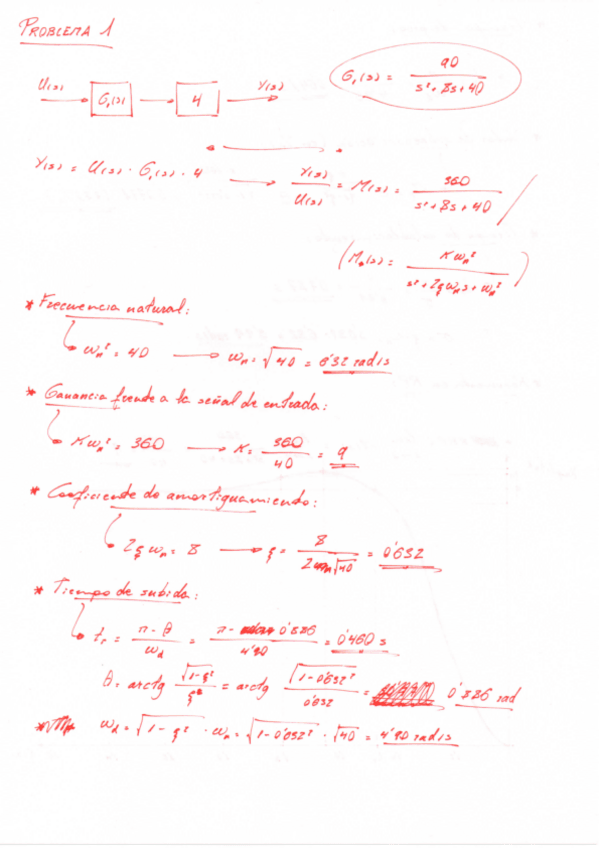 PROBLEMA 1
U(s) G₁(s) 4 Y(s) G₁(s) = 90 / (s² + 8s + 40)
Y(s) = U(s) · G₁(s) · 4 → Y(s)/U(s) = M(s) = 360 / (s² + 8s + 40)
(Mₐ(s) = Kωₙ² / (s² + 2ξωₙs + ωₙ²))
* Frecuencia natural:
ωₙ² = 40 → ωₙ = √40 = 6'32 rad/s
* Ganancia frente a la señal de entrada:
Kωₙ² = 360 → K = 360/40 = 9
* Coeficiente de amortiguamiento:
2ξωₙ = 8 → ξ = 8 / (2√40) = 0'632
* Tiempo de subida:
tᵣ = (π - θ) / ω_d = (π - 0'886) / 4'90 = 0'460 s
θ = arctg √(1-ξ²) / ξ = arctg √(1-0'632²) / 0'632 = 0'886 rad
ω_d = √(1-ξ²) · ωₙ = √(1-0'632²) · √40 = 4'90 rad/s